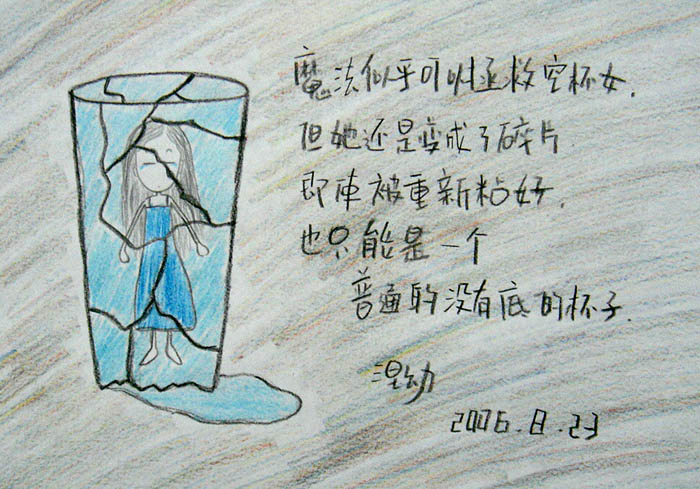 魔法似乎可以拯救空杯女.
但她还是变成了碎片
即使被重新粘好.
也只能是一个
普通的没有底的杯子.
涅幼
2006.8.23